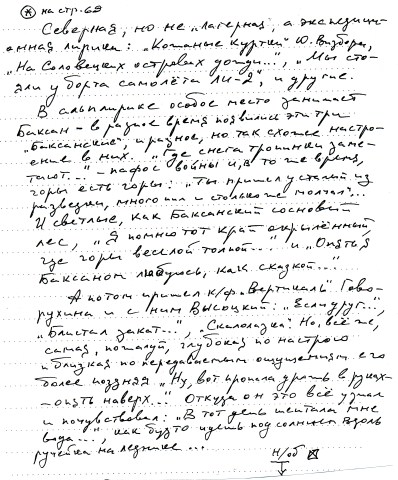 * на стр. 68
Северная, но не "лагерная", а экспедици-
онная лирика: "Кожаные куртки" Ю. Визбора,
"На Соловецких островах дожди...", "Мы сто-
яли у борта самолёта Ли-2", и другие.
В альплирике особое место занимает
Баксан – в разное время появились эти три
"Баксанские", и разное, но так схожее настро-
ение в них. "Где снега тропинки заме-
тают..." – пафос войны и, в то же время,
горы есть горы: "Ты пришел усталый из
разведки, много пил и столько же молчал"...
И светлые, как Баксанский сосновый
лес, "Я помню тот край окрылённый,
где горы веселой толпой..." и "Опять я
Баксаном любуюсь, как сказкой..."
А потом пришел к/ф "Вертикаль" Гово-
рухина и с ним Высоцкий: "Если друг...",
"Блистал закат...", "Скалолазка". Но, всё же,
самая, пожалуй, глубокая по настрою
и близкая по передаваемым ощущениям его
более поздняя "Ну, вот пропала дрожь в руках
– опять наверх..." Откуда он это всё узнал
и почувствовал: "В тот день шептала мне
вода...", как будто идешь под солнцем вдоль
ручейка на леднике...
н/об